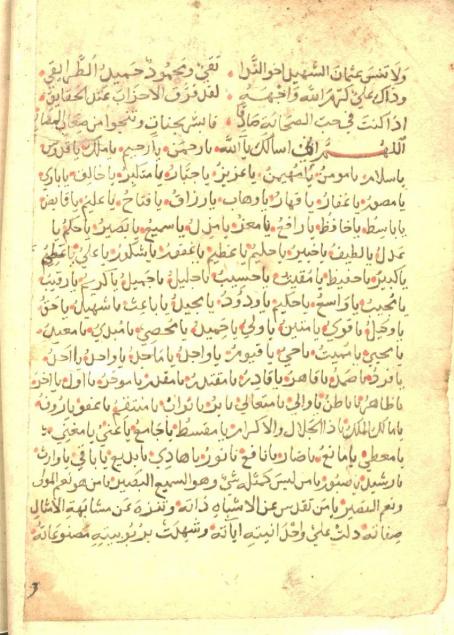 ولا تنس عثمان الشهيد اخو الندا • تقي ومحمود حميد الطرايق •
وذاك علي كرم الله وجهه • لقد فرق الاحزاب عند الحقايق •
اذا كنت في حب الصحابة صادق • فابشر بجنات وتنجوا من
اللهم اني اسالك يا الله • يا رحمن • يا رحيم • يا ملك • يا قدوس
يا سلام • يا مومن • يا مهيمن • يا عزيز • يا جبار • يا متكبر • يا خالق • يا باري
يا مصور • يا غفار • يا قهار • يا وهاب • يا رزاق • يا فتاح • يا عليم • يا قابض
يا باسط • يا خافظ • يا رافع • يا معز • يا مذل • يا سميع • يا بصير • يا حكم • يا
عدل • يا لطيف • يا خبير • يا حليم • يا عظيم • يا غفور • يا شكور • يا علي • يا عظيم
يا كبير • يا حفيظ • يا مقيت • يا حسيب • يا جليل • يا جميل • يا كريم • يا رقيب
يا مجيب • يا واسع • يا حكيم • يا ودود • يا مجيد • يا باعث • يا شهيد • يا حق
يا وكيل • يا قوي • يا متين • يا ولي • يا حميد • يا محصي • يا مبدي • يا معيد •
يا محيي • يا مميت • يا حي • يا قيوم • يا واجد • يا ماجد • يا واحد • يا احد •
يا فرد • يا صمد • يا قاهر • يا قادر • يا مقتدر • يا مقدم • يا موخر • يا اول • يا اخر
يا ظاهر • يا باطن • يا والي • يا متعالي • يا بر • يا تواب • يا منتقم • يا عفو • يا روف
يا مالك الملك • يا ذا الجلال والاكرام • يا مقسط • يا جامع • يا غني • يا مغني •
يا معطي • يا مانع • يا ضار • يا نافع • يا نور • يا هادي • يا بديع • يا باقي • يا وارث
يا رشيد • يا صبور • يا من ليس كمثله شي وهو السميع البصير • يا من هو نعم المولى
ونعم النصير • يا من تقدس عن الاشباه ذاته • وتنزه عن مشابهة الامثال
صفاته • دلت علي وحدانيته اياته • وشهدت بربوبيته مصنوعاته
3